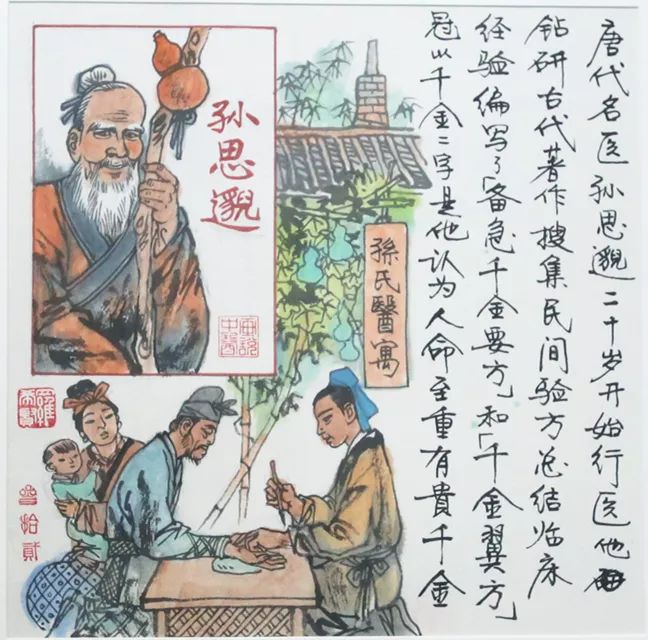 唐代名医孙思邈二十岁开始行医他
钻研古代著作搜集民间验方总结临床
经验编写了「备急千金要方」和「千金翼方」
冠以千金二字是他认为人命至重有貴千金
孙思邈
画说
中醫
孫氏醫寓